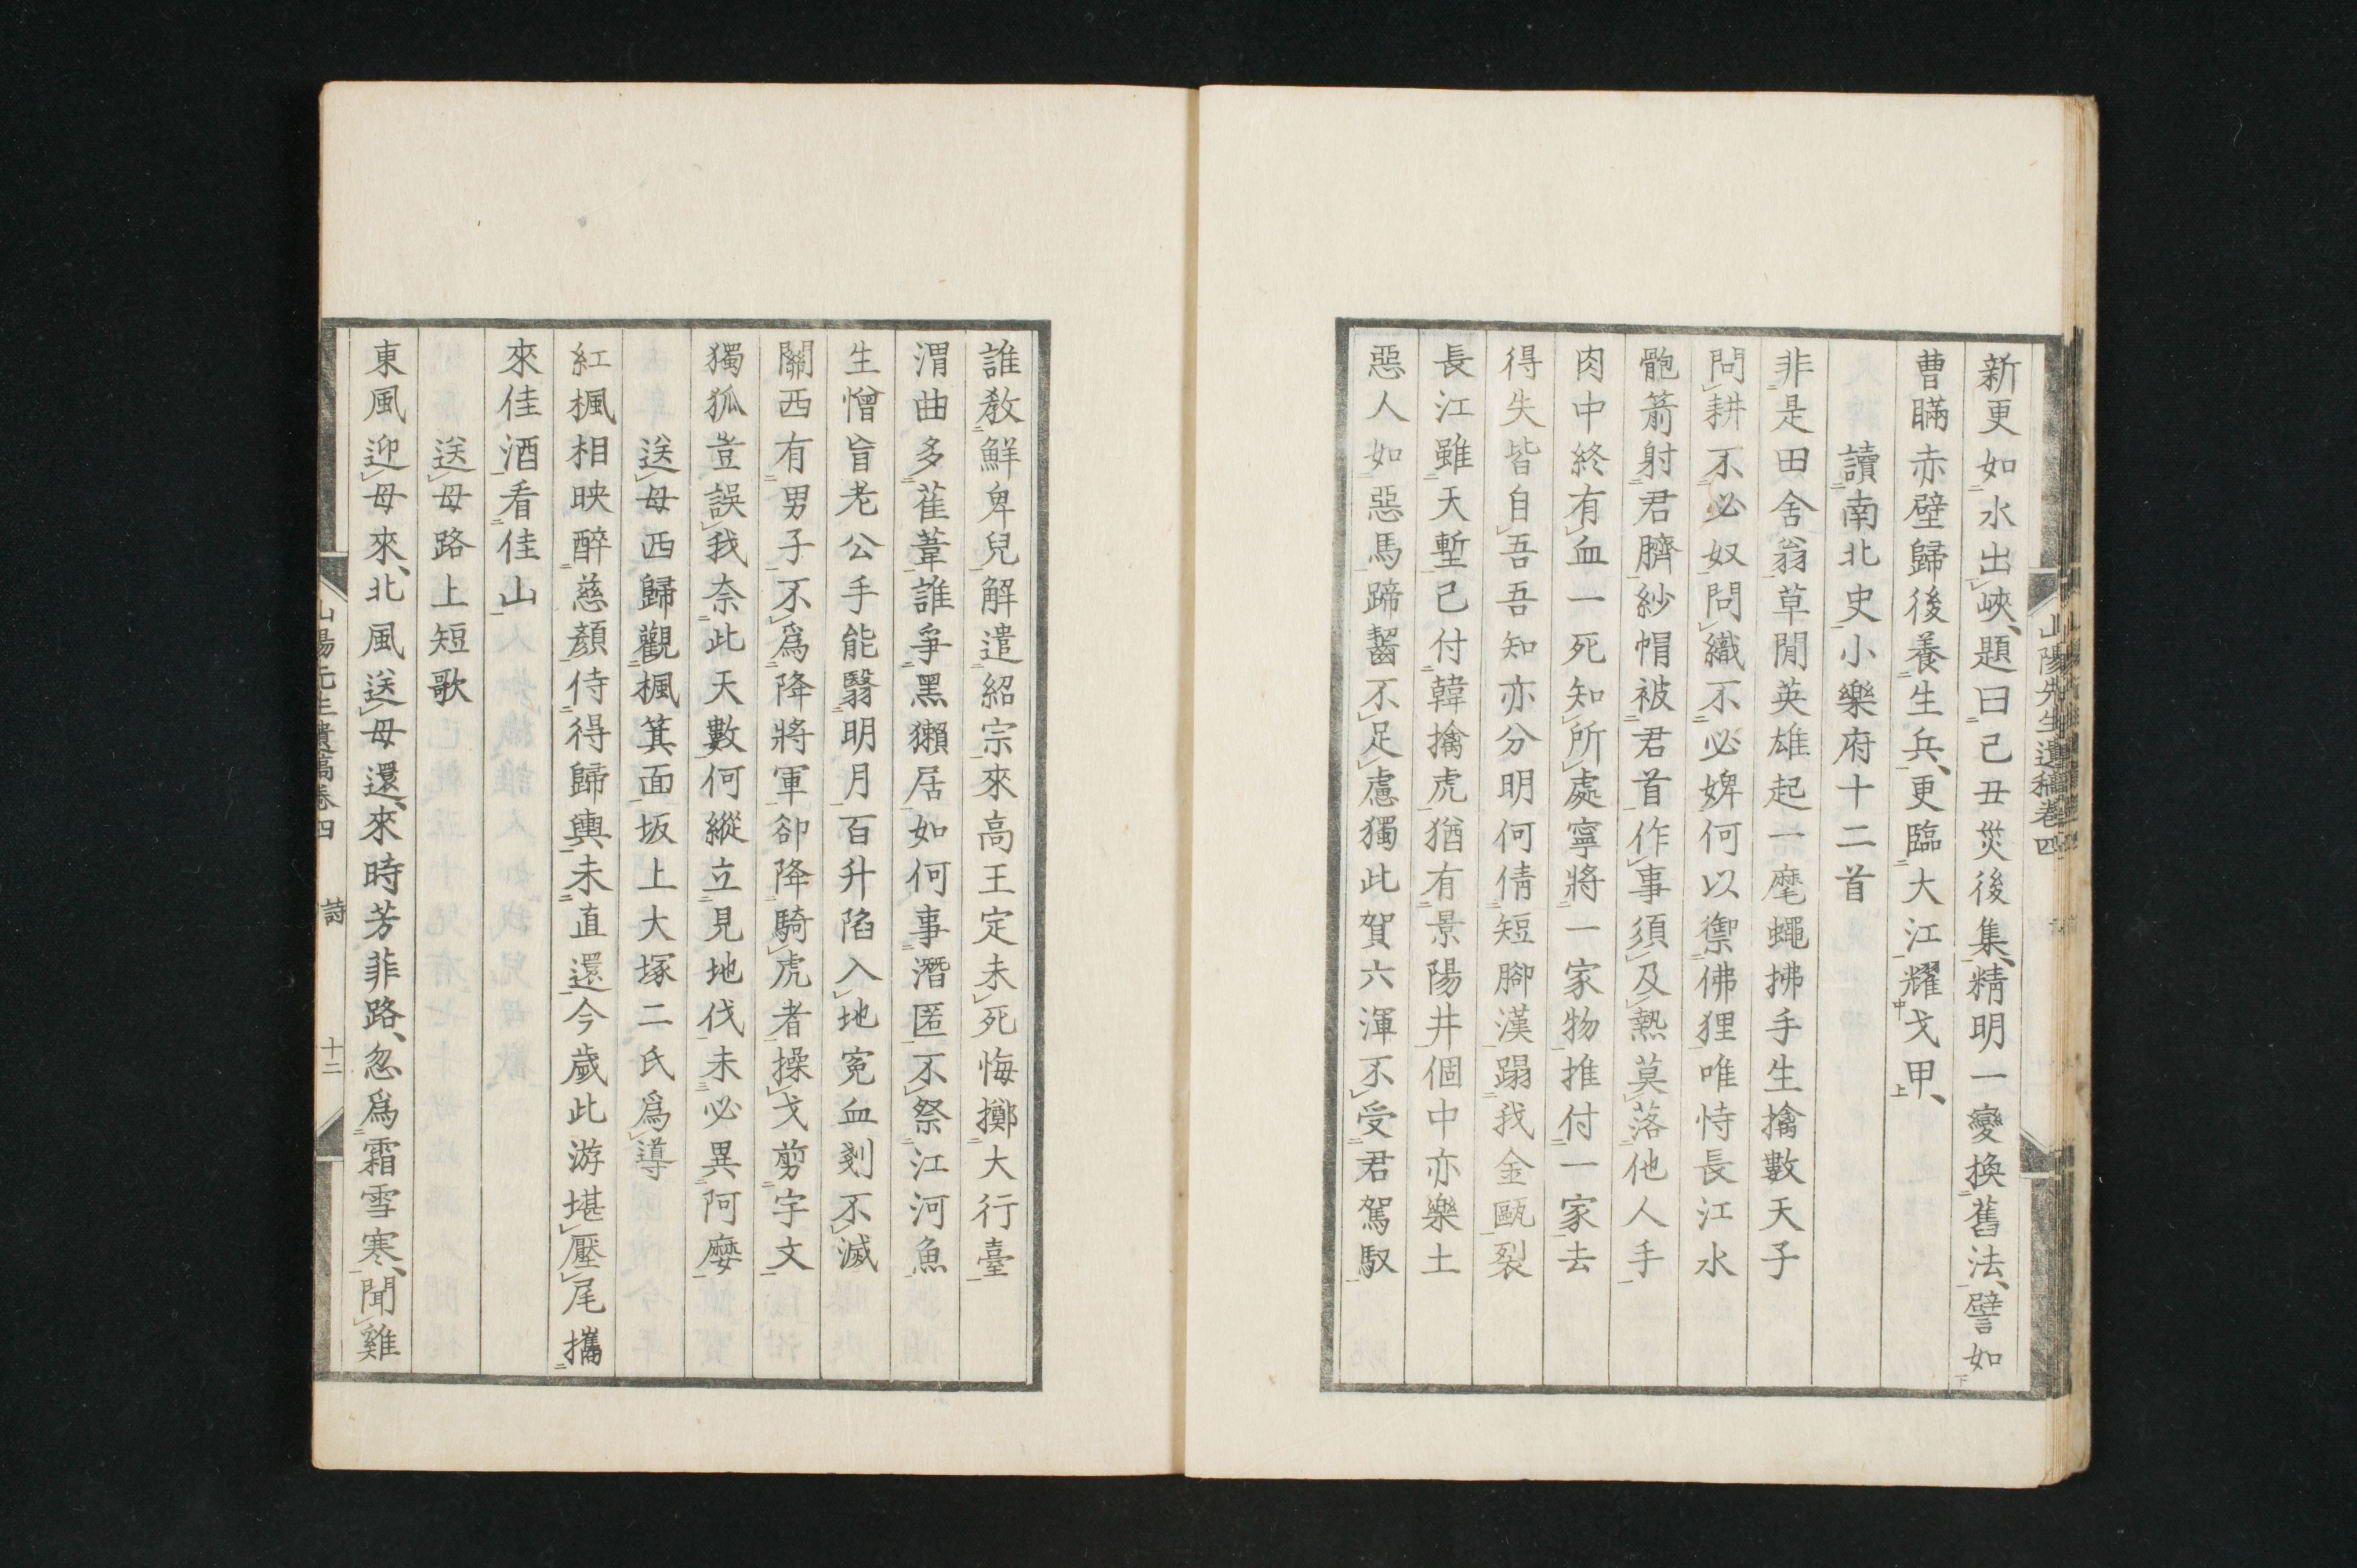 新更如水出峽題曰己丑災後集精明一變換舊法譬如
曹瞞赤壁歸後養生兵更臨大江耀戈甲
讀南北史小樂府十二首
非是田舍翁草間英雄起一麾蠅拂手生擒數天子
問耕不必奴問織不必婢何以禦佛狸唯恃長江水
骲箭射君臍紗帽被君首作事須及熱莫落他人手
肉中終有血一死知所處寧將一家物推付一家去
得失皆自吾吾知亦分明何倩短腳漢蹋我金甌裂
長江雖天塹已付韓擒虎猶有景陽井個中亦樂土
惡人如惡馬蹄齧不足慮獨此賀六渾不受君駕馭
山陽先生遺稿卷四
誰教鮮卑兒解遣紹宗來高王定未死悔擲大行臺
渭曲多萑葦誰爭黑獺居如何事潛匿不祭江河魚
生憎盲老公手能翳明月百升陷入地冤血剗不滅
關西有男子不爲降將軍卻降騎虎者操戈剪宇文
獨狐豈誤我奈此天數何縱立見地伐未必異阿㜷
送母西歸觀楓箕面坂上大塚二氏爲導
紅楓相映醉慈顏侍得歸輿未直還今歲此游堪壓尾攜
來佳酒看佳山
送母路上短歌
東風迎母來北風送母還來時芳菲路忽爲霜雪寒聞雞
山陽先生遺稿卷四 詩 十二